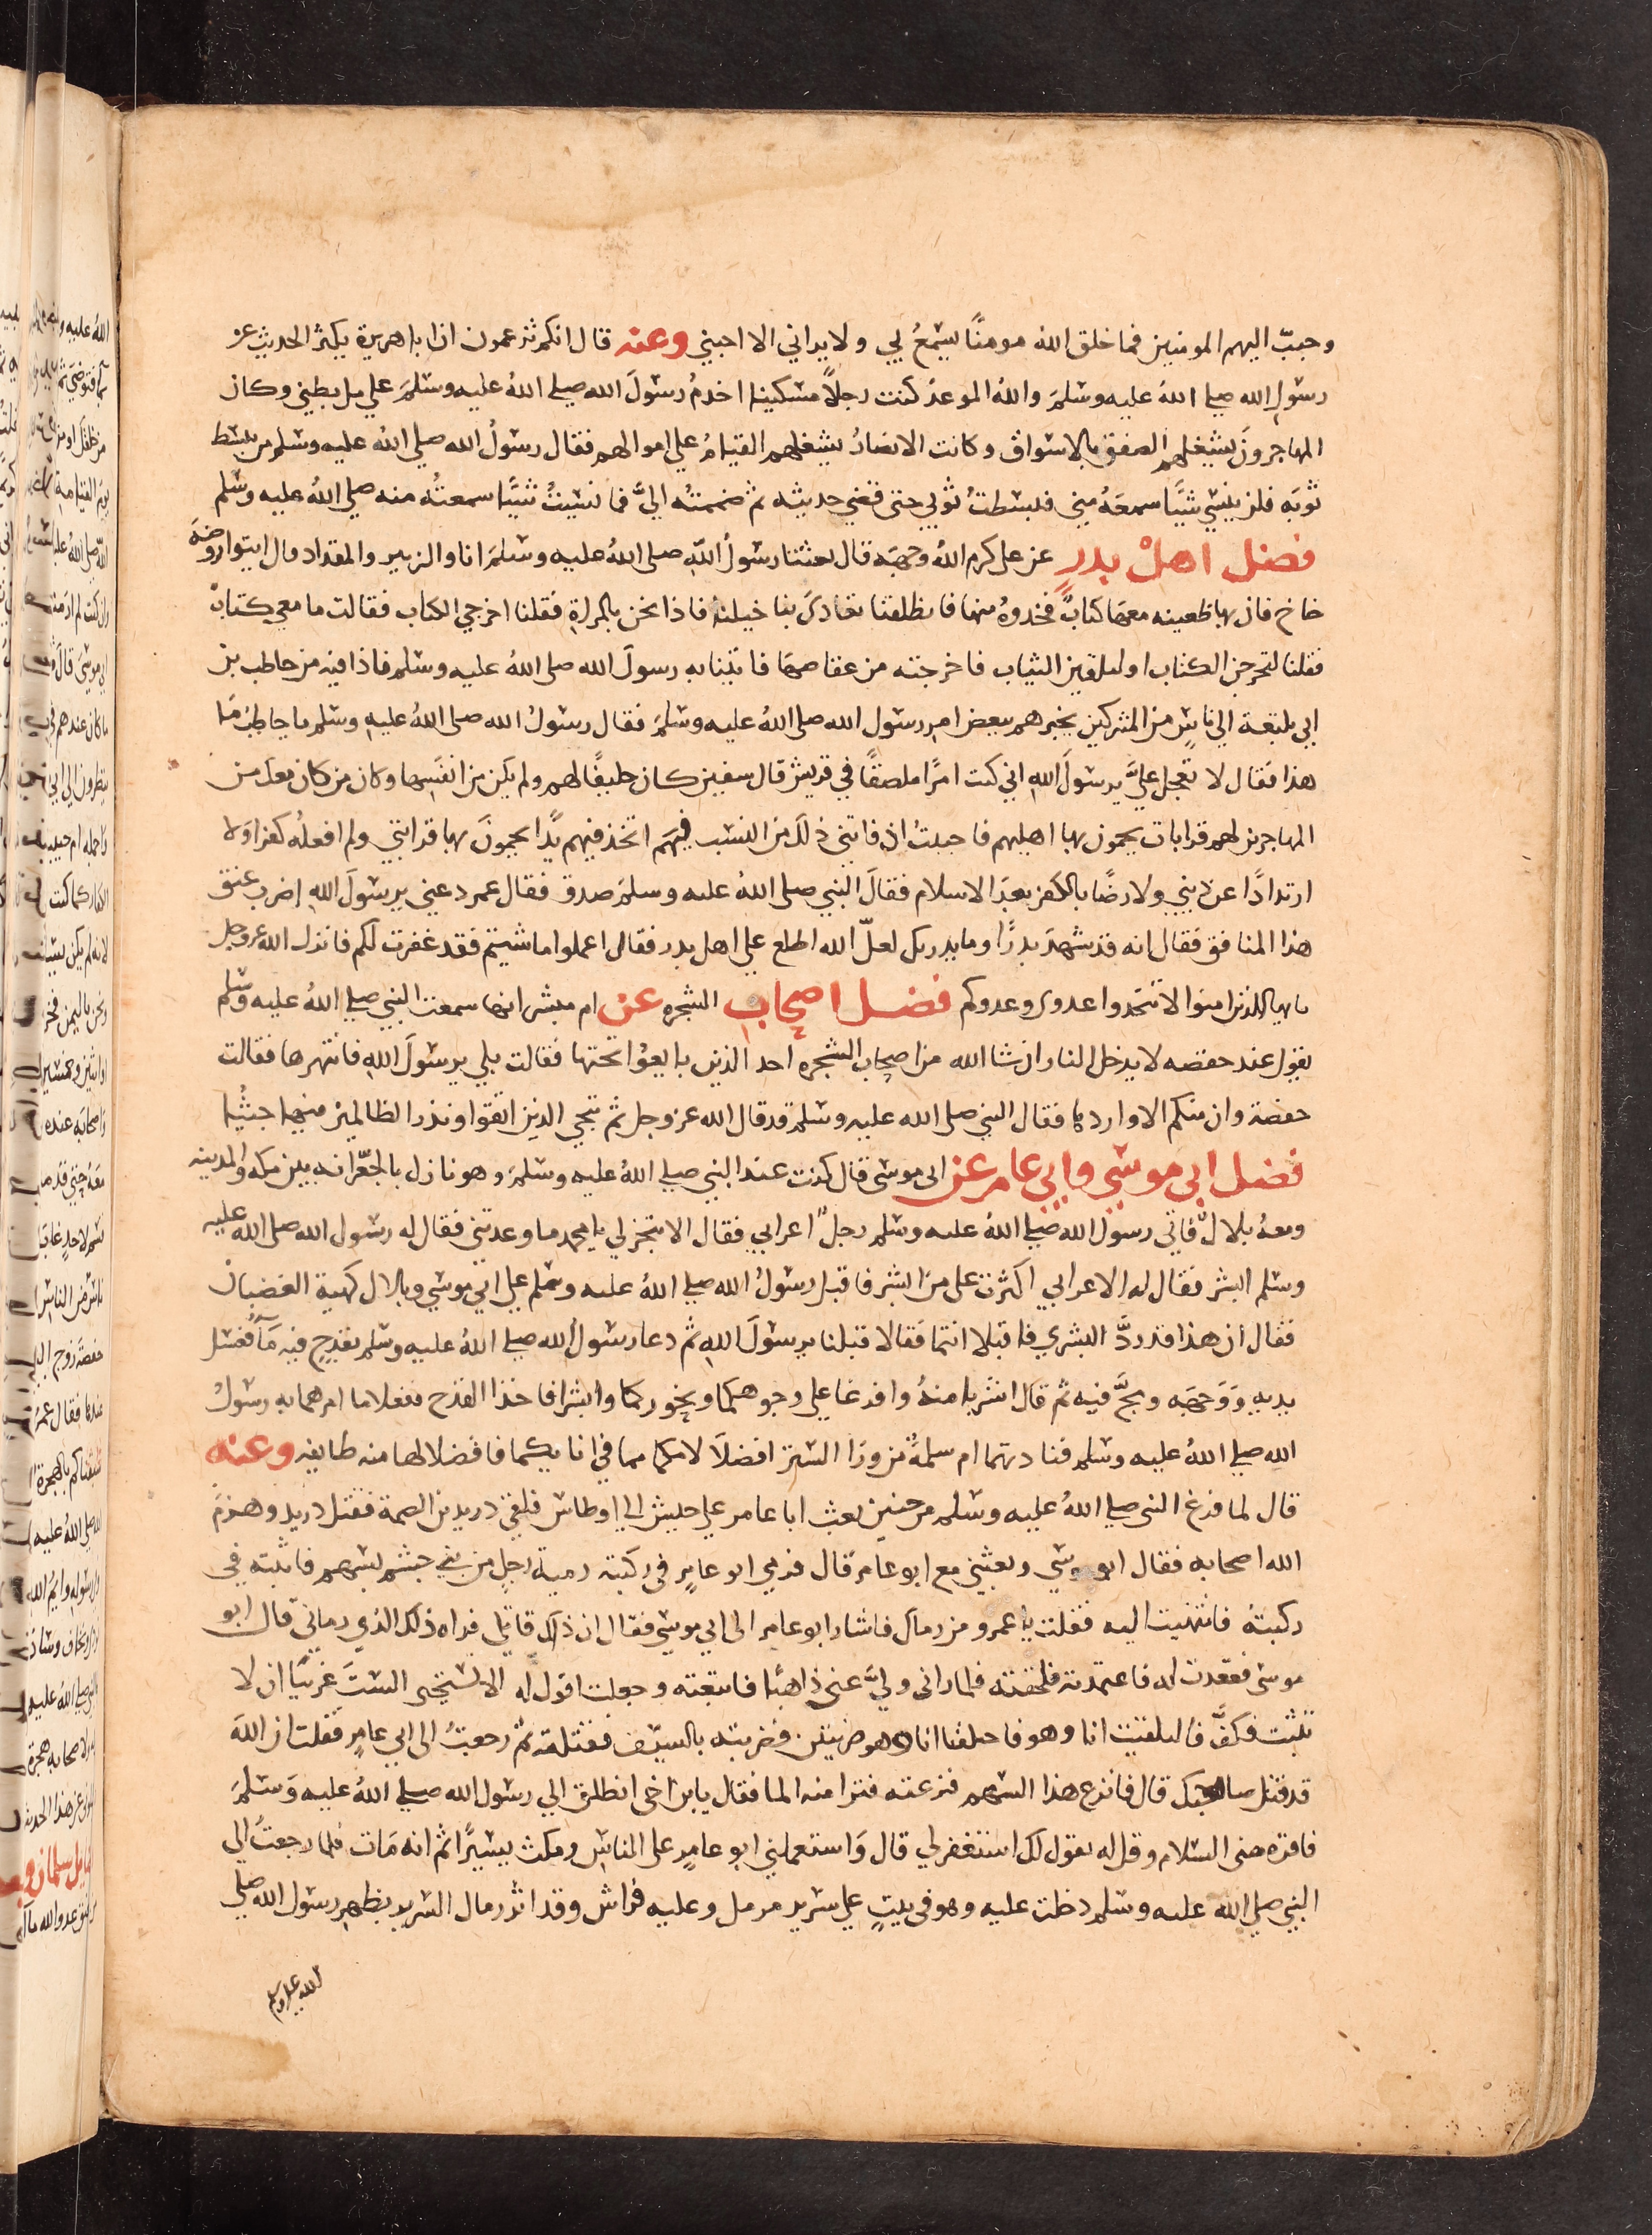 وحبّب اليهم المومنين فما خلق الله مومنًا يسمعُ لي ولا يراني الا احبني وعنه قال انكم تزعمون ان ابا هريرة يكثر الحديث عن
رسول الله صلى الله عليه وسلم والله الموعد كنت رجلًا مسكينا اخدمُ رسولَ الله صلى الله عليه وسلم على مل بطني وكان
المهاجرونَ يشغلهم الصفق بالاسواق وكانت الانصارُ يشغلهم القيامُ على اموالهم فقال رسولُ الله صلى الله عليه وسلم من بسط
ثوبَه فلن ينسي شيًا سمعَهُ مني فبسطتُ ثوبي حتى قضي حديثه ثم ضممتُه اليَّ فما نسيتُ شيًا سمعتُه منه صلى الله عليه وسلم
فضل اهل بدر عن على كرم الله وجهَه قال بعثنا رسولُ الله صلى الله عليه وسلم انا والزبير والمقداد فقال ايتوا روضَة
خاخ فان بها ظعينه معهَا كتابٌ فخذوهُ منها فانطلقنا تعادَى بنا خيلنا فاذا نحن بالمراةِ فقلنا اخرجي الكتاب فقالت ما معي كتابٌ
فقلنا لتخرجن الكتاب او لتلقين الثياب فاخرجته من عقاصهَا فاتينا به رسولَ الله صلى الله عليه وسلم فاذا فيه من حاطب بن
ابي بلتعة الي ناسٍ من المشركين يخبرهم ببعض امر رسول الله صلى الله عليه وسلم فقال رسولُ الله صلى الله عليه وسلم يا حاطبُ مَا
هذا فقال لا تعجل عليَّ يرسولَ اللهِ اني كنت امرًا ملصقًا في قريش قال سفين كان حليفًا لهم ولم يكن من انفسِها وكان من كان معكَ من
المهاجرين لهم قرابات يحمون بها اهليهم فاحببتُ اذ فاتني ذلكَ من النسب فيهم ان اتخذ فيهم يدًا يحمونَ بها قرابتي ولم افعلهُ كفرا ولا
ارتدادًا عن ديني ولا رضًا بالكفر بعدَ الاسلام فقالَ النبي صلى الله عليه وسلم صدق فقال عمر دعني يرسولَ اللهِ اضرب عنق
هذا المنافق فقال انه قد شهدَ بدرًا وما يدريك لعلّ الله اطلع على اهل بدر فقال اعملوا ما شيتم فقد غفرت لكم فانزل الله عز وجل
يايها الذين امنوا لا تتخذوا عدوى وعدوكم فضل اصحاب الشجره عن ام مبشر انها سمعت النبي صلى الله عليه وسلم
يقول عند حفصه لا يدخل النار ان شا الله من اصحاب الشجره احد الذين بايعوا تحتها فقالت بلي يرسولَ اللهِ فانتهرها فقالت
حفصة وان منكم الا واردها فقال النبي صلى الله عليه وسلم قد قال الله عز وجل ثم ننجي الذين اتقوا ونذر الظالمين فيها جثيًا
فضل ابي موسي وابي عامر عن ابى موسى قال كنت عند النبي صلى الله عليه وسلم وهو نازل بالجعّرانه بين مكه والمدينه
ومعهُ بلالٌ فاتى رسول الله صلى الله عليه وسلم رجلٌ اعرابي فقال الا تنجز لي يا محمد ما وعدتني فقال له رسول الله صلى الله عليه
وسلم ابشر فقال له الاعرابي اكثرت على من ابشر فاقبل رسولُ الله صلى الله عليه وسلم على ابي موسي وبلال كهية الغضبان
فقال ان هذا قد ردَّ البشري فاقبلا انتما فقالا قبلنا يرسولَ اللهِ ثم دعا رسولُ الله صلى الله عليه وسلم بقدحٍ فيه مآ فغسل
يديه وَوَجهَه ومجَّ فيه ثم قال اشربا منهُ وافرغا على وجوهكما ونحوركما وابشرا فاخذا القدح ففعلا ما امرهما به رسولُ
الله صلى الله عليه وسلم فنادتهما ام سلمةُ من ورَا الستر افضلَا لامكما مما في انايكما فافضلا لها منه طايفه وعنه
قال لما فرغ النبى صلى الله عليه وسلم من حنين بعث ابا عامر على جيش الى اوطاس فلقي دريد بن الصمة فقتل دريد وهزمَ
الله اصحابه فقال ابو موسي وبعثني مع ابو عامر قال فرمي ابو عامرٍ في ركبته رميةُ رجل من بني جشم بسهم فاثبته في
ركبتهِ فانتهيت اليه فقلت يا عم من رماك فاشار ابو عامر الى ابي موسي فقال ان ذاك قاتلي فراه ذلك الذي رماني قال ابو
موسى فقعدت له فاعتمدته فلحقته فلما رانى وليَّ عنى ذاهبًا فاتبعته وجعلت اقول له الا تستحيى الستَ عربيًا ان لا
تثبت فكفَّ فالتقيت انا وهو فاختلفنا انا وهو ضربتين وضربته بالسيف فقتلته ثم رجعتُ الى ابي عامرٍ فقلت ان اللهَ
قد قتل صاحبك قال فانزع هذا السهم فنزعته فنزا منه الما فقال يا بن اخى انطلق الي رسول الله صلى الله عليه وسلم
فاقره منى السلام وقل له يقول لك استغفر لي قال وَاستعملني ابو عامرٍ على الناسِ ومكث يسيرًا ثم انه مَات فلما رجعتُ الى
النبي صلى الله عليه وسلم دخلت عليه وهو في بيتٍ على سرير مرمل وعليه فراش وقد اثر رمال السرير بظهر رسول الله صلى
الله عليه وسلم